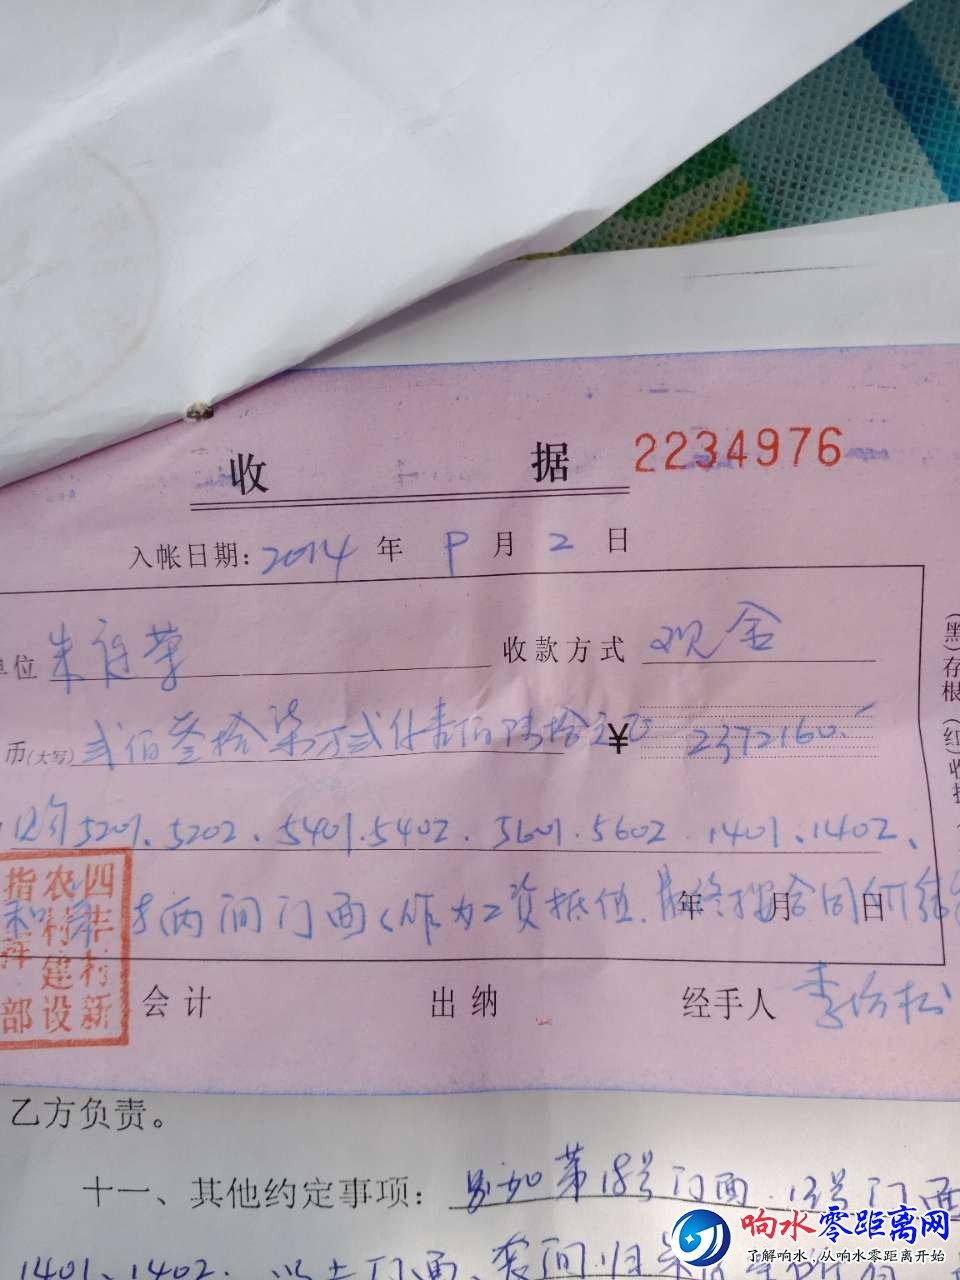 收 据 2234976
入帐日期: 2014 年 9 月 2 日
单位 朱 荣 收款方式 现金
币(大写) 贰佰叁拾柒万贰仟壹佰陆拾元正 ¥ 2372160.
5201、5202、5401、5402、5601、5602、1401、1402、
两间门面(作为工资抵值,最终按合同价结
年 月 日
四丰村新
农村建设
指挥部
会计 出纳 经手人 李 松
(黑)存根 (红)收据
乙方负责。
十一、其他约定事项: 另加第18号门面、13号门面
1401、1402、以上门面、套间归
响水零距离网
了解响水,从响水零距离开始